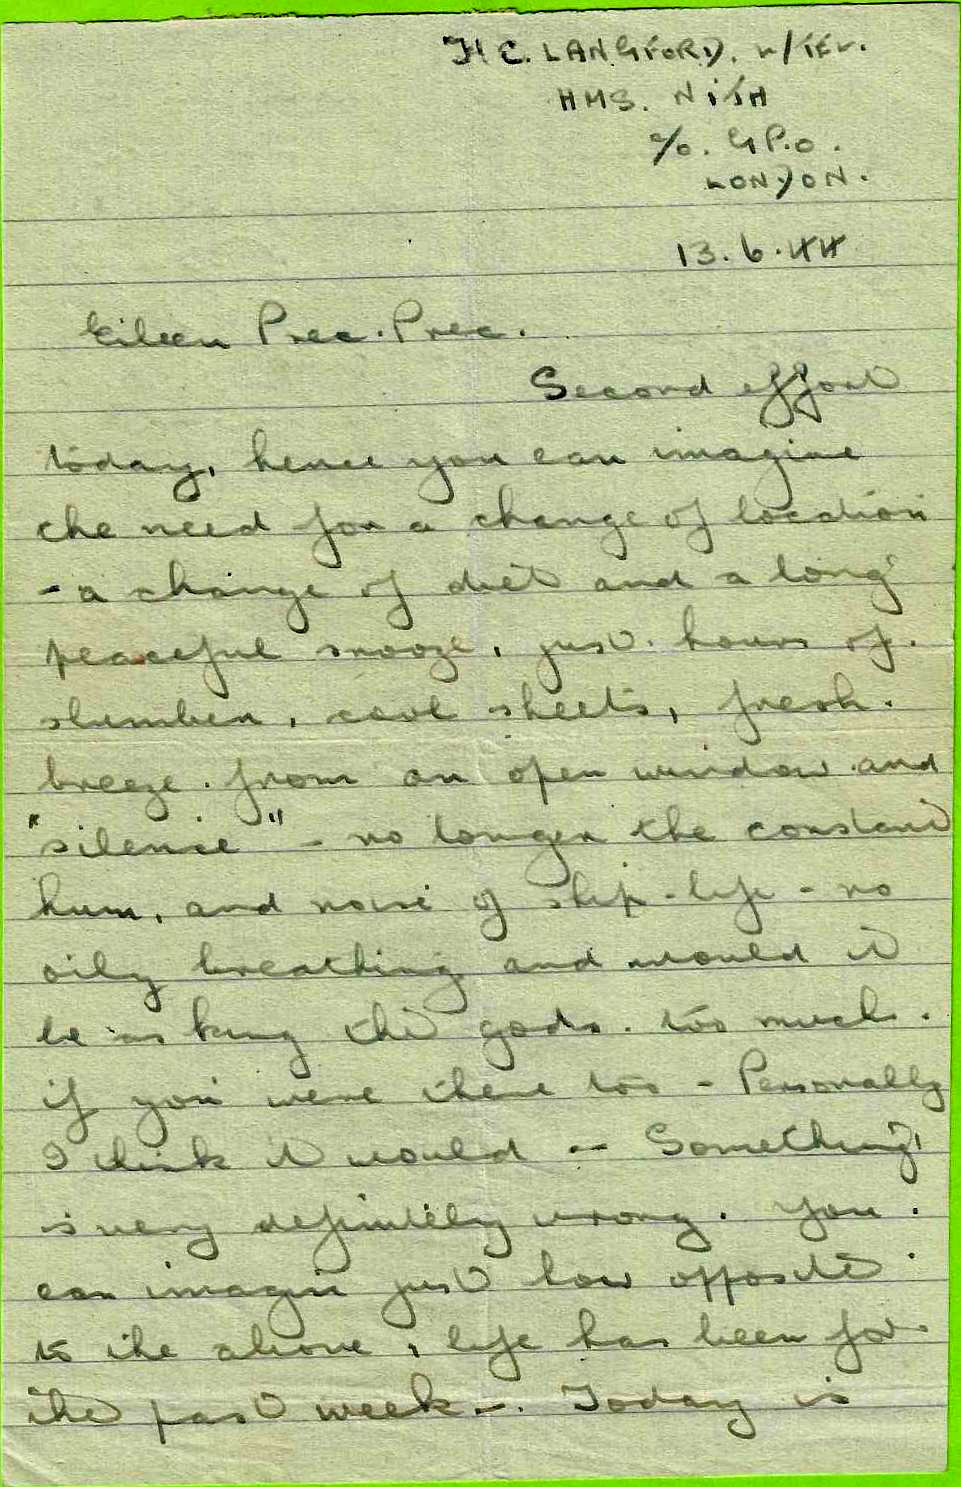 H C. LANGFORD. W/TEL.
HMS. NITH
c/o. G.P.O.
LONDON.
13.6.44
Eileen Prec. Prec.
Second effort
today, hence you can imagine
the need for a change of location
- a change of diet and a long
peaceful snooze, just hours of.
slumber, cool sheets, fresh.
breeze. from an open window and
"silence" - no longer the constant
hum, and noise of ship-life - no
oily breathing and would it
be asking the gods. too much.
if you were there too - Personally
I think it would -- Something,
is very definitely wrong. You.
can imagin just how opposite
to the above, life has been for.
the past week -. Today is